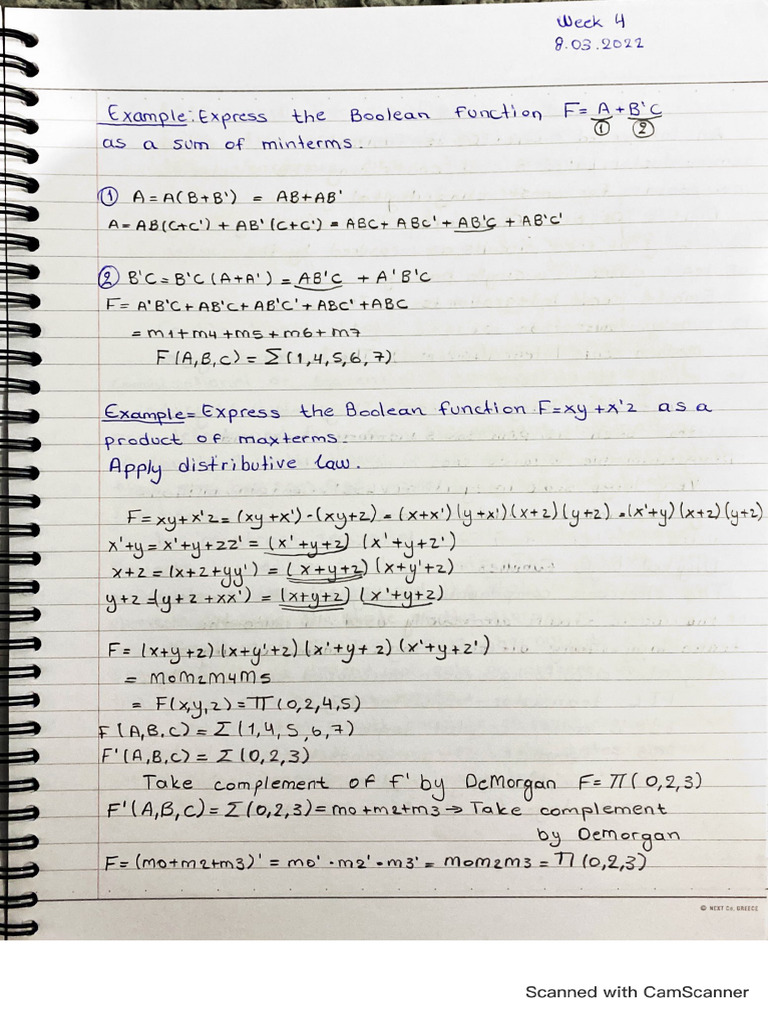 Week 4
8.03.2022
Example: Express the Boolean function F= A + B'C
① ②
as a sum of minterms.
① A = A(B+B') = AB+AB'
A= AB(C+C') + AB'(C+C') = ABC+ ABC' + AB'C + AB'C'
② B'C = B'C (A+A') = AB'C + A'B'C
F= A'B'C + AB'C + AB'C' + ABC' + ABC
= m1+m4+m5+m6+m7
F(A,B,C) = Σ(1,4,5,6,7)
Example= Express the Boolean function F=xy+x'z as a
product of maxterms.
Apply distributive law.
F= xy+x'z = (xy+x')·(xy+z) = (x+x')(y+x')(x+z)(y+z) = (x'+y)(x+z)(y+z)
x'+y = x'+y+zz' = (x'+y+z) (x'+y+z')
x+z = (x+z+yy') = (x+y+z)(x+y'+z)
y+z =(y+z+xx') = (x+y+z) (x'+y+z)
F= (x+y+z)(x+y'+z)(x'+y+z)(x'+y+z')
= M0M2M4M5
= F(x,y,z)=Π(0,2,4,5)
F(A,B,C) = Σ(1,4,5,6,7)
F'(A,B,C) = Σ(0,2,3)
Take complement of f' by DeMorgan F= Π(0,2,3)
F'(A,B,C) = Σ(0,2,3) = m0+m2+m3 → Take complement
by Demorgan
F= (m0+m2+m3)' = m0'·m2'·m3' = M0M2M3 = Π(0,2,3)
© NEXT Co. GREECE
Scanned with CamScanner